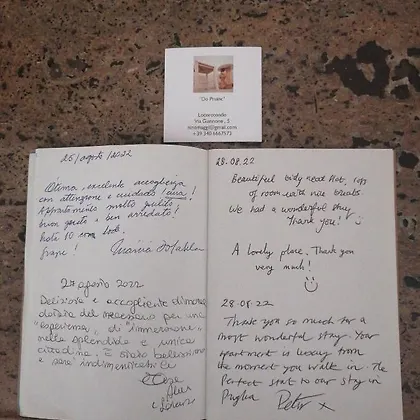 "Do Pinate"
Lobortondie
Via Giannone, 5
@gmail.com
+39 340 6667573
26/agosto/2022
Ottima excelente accoglienza
con attenzione e cuidado! cura!
Appartamento molto pulito!
buon gusto e ben arredato!
Voti 10 con lode.
grazie!
27 agosto 2022
Deliziosa e accogliente dimora
dotata del necessario per una
"esperienza" di "immersione"
nella splendida e unica
cittadina. È stato bellissimo
e sarà indimenticabile
28.08.22
Beautiful
of room with nice
We had a wonderful stay
Thank you!
A lovely place. Thank you
very much!
28-08-22
Thank you so much for a
most wonderful stay. Your
apartment is luxury from
the moment you walk in. The
Perfect start to our stay in
Puglia
Peter x